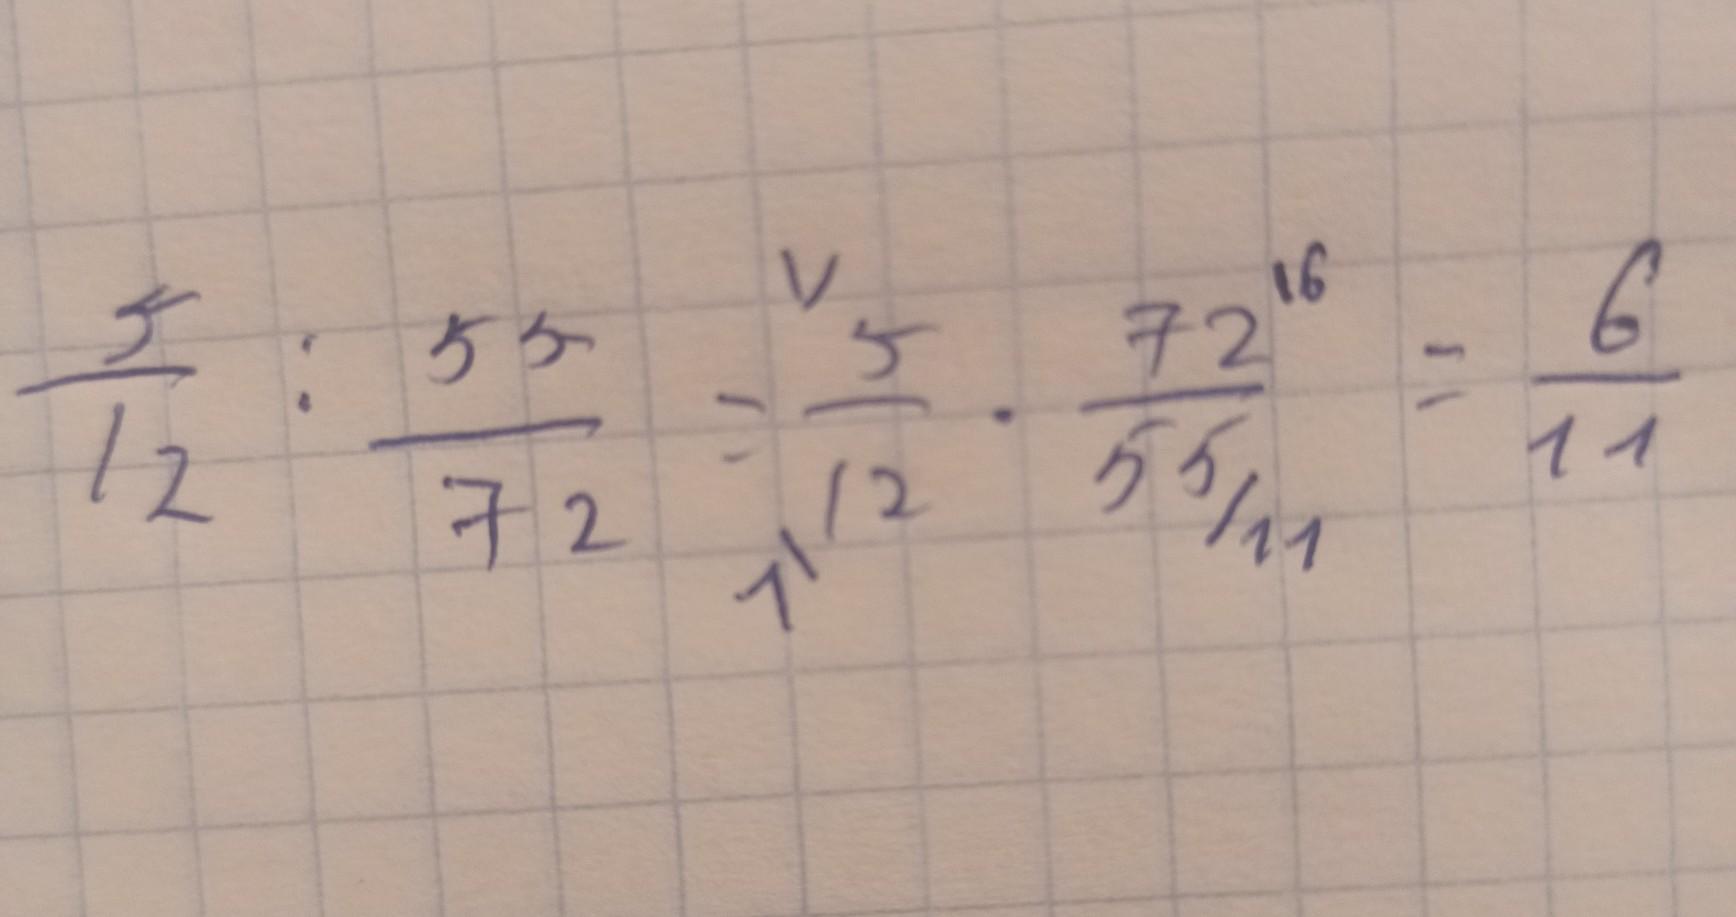 5/12 : 55/72 = 1\ 5/12 /1 · 72 \6/55 /11 = 6/11